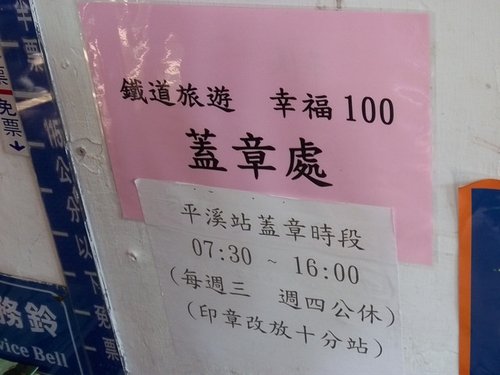 鐵道旅遊 幸福100
蓋章處
平溪站蓋章時段
07:30 ~ 16:00
(每週三 週四公休)
(印章改放十分站)
半票
免票
公分以下免票
務鈴
vice Bell